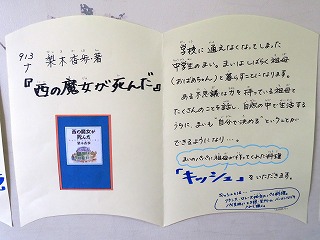 913
ナ
梨木香歩 著
『西の魔女が死んだ』
西の魔女が
死んだ
梨木香歩
学校に通えなくなってしまった
中学生のまい。まいはしばらく祖母
(おばあちゃん)と暮らすことになります。
ある不思議な力を持っている祖母と
たくさんのことを話し、自然の中で生活する
うちに、まいも"自分で決める"ということが
できるようになり…。
まいのパパに祖母が作ってくれた料理
「キッシュ」をいただきます。